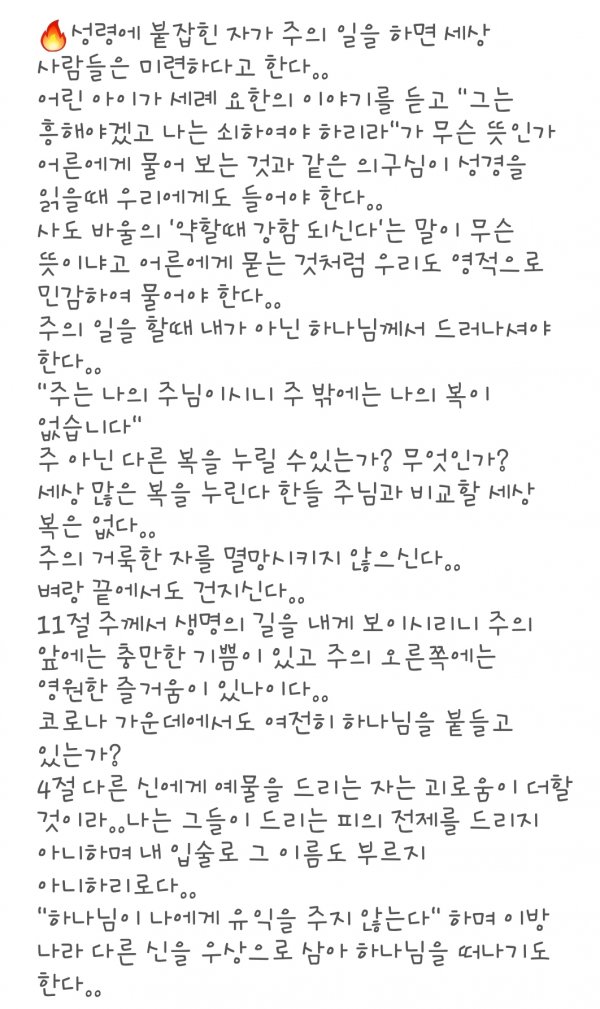 🔥성령에 붙잡힌 자가 주의 일을 하면 세상
사람들은 미련하다고 한다..
어린 아이가 세례 요한의 이야기를 듣고 "그는
흥해야겠고 나는 쇠하여야 하리라"가 무슨 뜻인가
어른에게 물어 보는 것과 같은 의구심이 성경을
읽을때 우리에게도 들어야 한다..
사도 바울의 '약할때 강함 되신다'는 말이 무슨
뜻이냐고 어른에게 묻는 것처럼 우리도 영적으로
민감하여 물어야 한다..
주의 일을 할때 내가 아닌 하나님께서 드러나셔야
한다..
"주는 나의 주님이시니 주 밖에는 나의 복이
없습니다"
주 아닌 다른 복을 누릴 수있는가? 무엇인가?
세상 많은 복을 누린다 한들 주님과 비교할 세상
복은 없다..
주의 거룩한 자를 멸망시키지 않으신다..
벼랑 끝에서도 건지신다..
11절 주께서 생명의 길을 내게 보이시리니 주의
앞에는 충만한 기쁨이 있고 주의 오른쪽에는
영원한 즐거움이 있나이다..
코로나 가운데에서도 여전히 하나님을 붙들고
있는가?
4절 다른 신에게 예물을 드리는 자는 괴로움이 더할
것이라..나는 그들이 드리는 피의 전제를 드리지
아니하며 내 입술로 그 이름도 부르지
아니하리로다..
"하나님이 나에게 유익을 주지 않는다" 하며 이방
나라 다른 신을 우상으로 삼아 하나님을 떠나기도
한다..